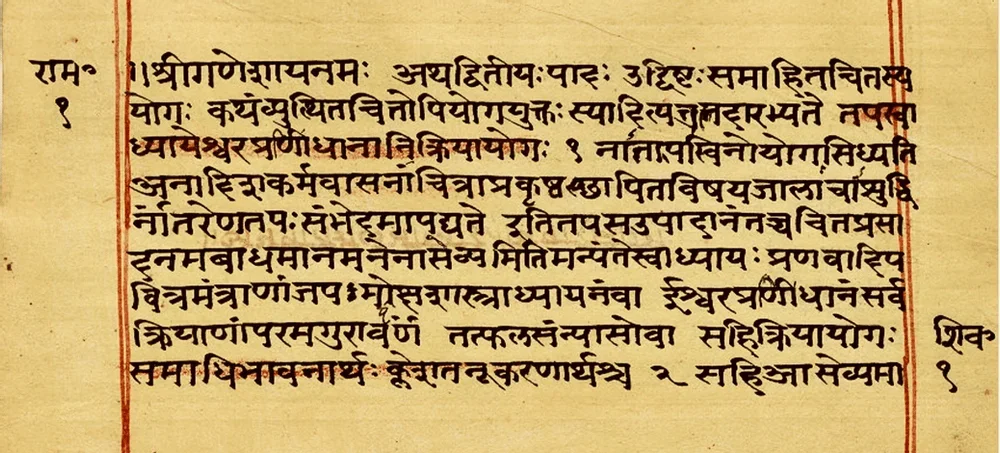 राम॰
१
॥श्रीगणेशायनमः अथद्वितीयःपादः उद्दिष्टःसमाहितचितस्य
योगः कथंव्युत्थितचित्तोपियोगयुक्तः स्यादित्येतत्तदारभ्यते तपस्वा
ध्यायेश्वरप्रणीधानानिक्रियायोगः १ नातापस्विनोयोगसिध्यति
अनादिक्लेशकर्मवासनाचित्राप्रकृष्ठस्छापितविषयजालाचाशुद्धि
र्नातरेणतपःसंभेदमापद्यते इतितपसउपादानंतच्चचितप्रसा
दनमबाधमानमनेनासेव्यमितिमन्यंतेस्वाध्यायः प्रणवादिप
वित्रमंत्राणांजपःमोक्षशास्त्राध्यायनंवा ईश्वरप्रणीधानंसर्व
क्रियाणांपरमगुरावर्पणं तत्फलसंन्यासोवा सहिक्रियायोगः
समाधिभावनार्थः क्लेशतनूकरणार्थश्च २ सहिआसेव्यमा
शिव॰
१